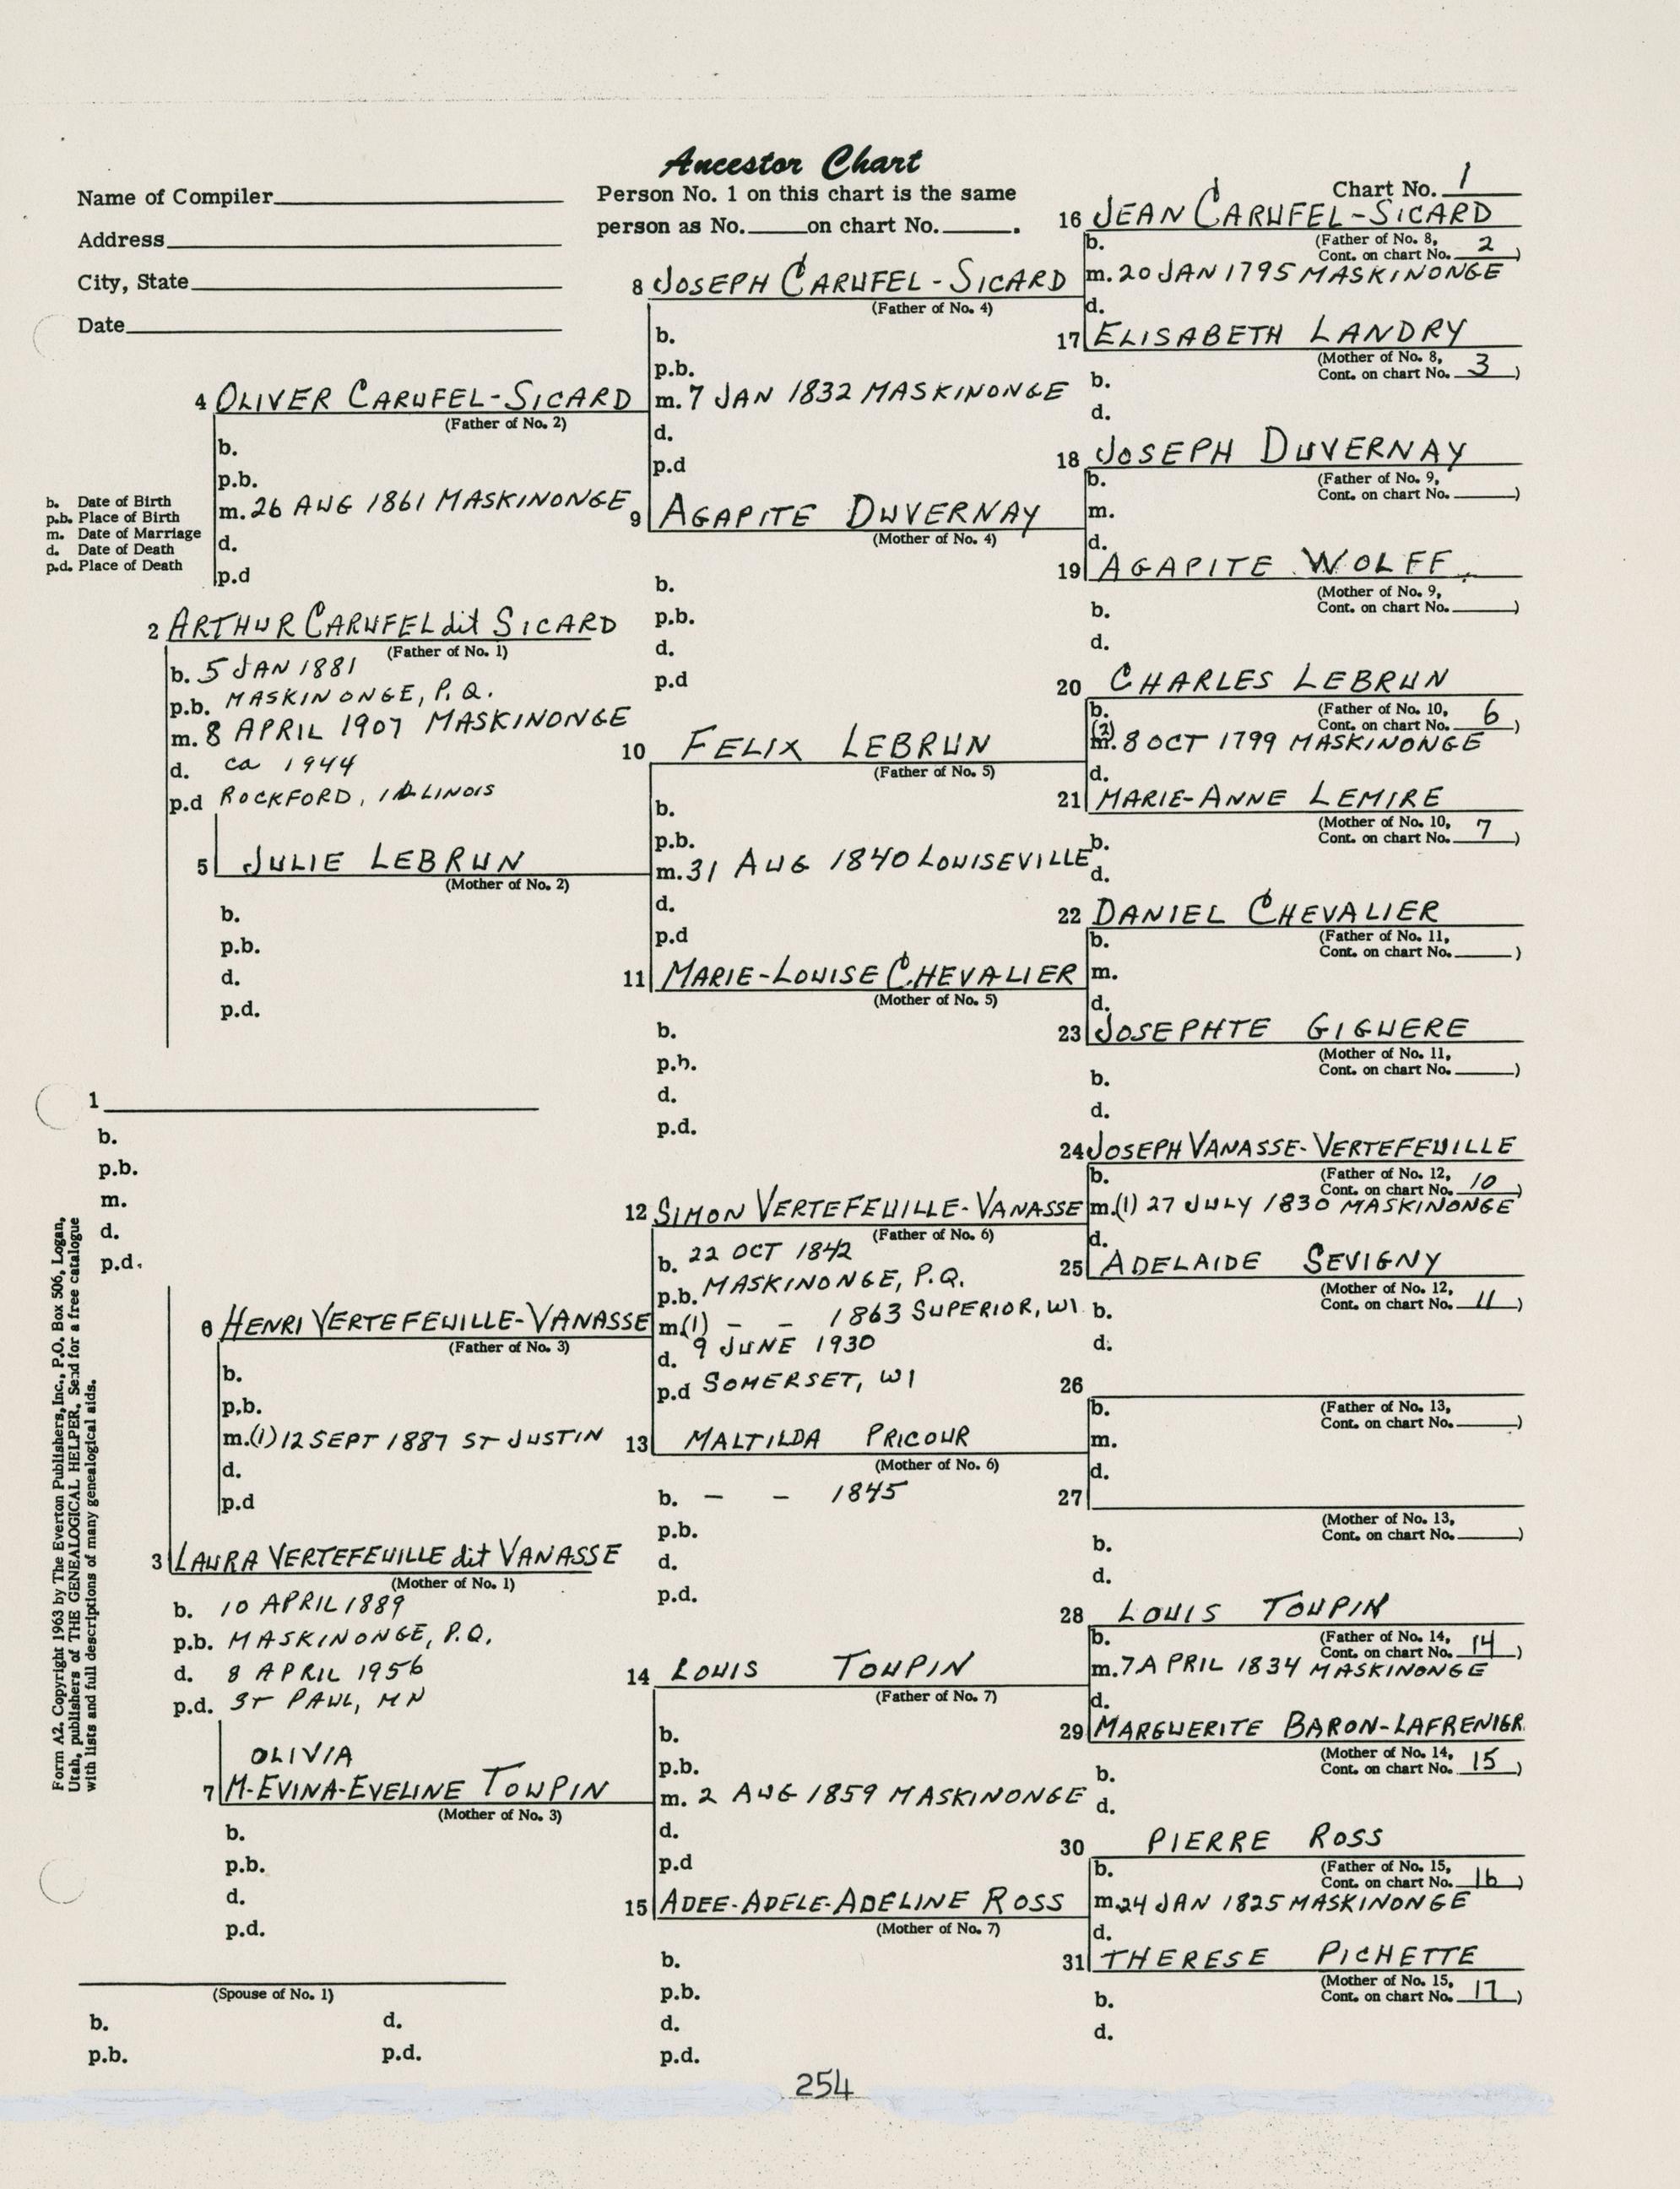 Ancestor Chart
Name of Compiler
Address
City, State
Date
Person No. 1 on this chart is the same
person as No. on chart No. .
Chart No. 1
b. Date of Birth
p.b. Place of Birth
m. Date of Marriage
d. Date of Death
p.d. Place of Death
1
b.
p.b.
m.
d.
p.d.
2 ARTHUR CARUFEL dit SICARD
(Father of No. 1)
b. 5 JAN 1881
p.b. MASKINONGE, P.Q.
m. 8 APRIL 1907 MASKINONGE
d. ca 1944
p.d ROCKFORD, ILLINOIS
3 LAURA VERTEFEUILLE dit VANASSE
(Mother of No. 1)
b. 10 APRIL 1889
p.b. MASKINONGE, P.Q.
d. 8 APRIL 1956
p.d. ST PAUL, MN
4 OLIVER CARUFEL-SICARD
(Father of No. 2)
b.
p.b.
m. 26 AUG 1861 MASKINONGE
d.
p.d
5 JULIE LEBRUN
(Mother of No. 2)
b.
p.b.
d.
p.d.
6 HENRI VERTEFEUILLE-VANASSE
(Father of No. 3)
b.
p.b.
m.(1) 12 SEPT 1887 ST JUSTIN
d.
p.d
OLIVIA
7 M-EVINA-EVELINE TOUPIN
(Mother of No. 3)
b.
p.b.
d.
p.d.
(Spouse of No. 1)
b. d.
p.b. p.d.
8 JOSEPH CARUFEL-SICARD
(Father of No. 4)
b.
p.b.
m. 7 JAN 1832 MASKINONGE
d.
p.d
9 AGAPITE DUVERNAY
(Mother of No. 4)
b.
p.b.
d.
p.d
10 FELIX LEBRUN
(Father of No. 5)
b.
p.b.
m. 31 AUG 1840 LOUISEVILLE
d.
p.d
11 MARIE-LOUISE CHEVALIER
(Mother of No. 5)
b.
p.b.
d.
p.d.
12 SIMON VERTEFEUILLE-VANASSE
(Father of No. 6)
b. 22 OCT 1842
p.b. MASKINONGE, P.Q.
m.(1) - - 1863 SUPERIOR, WI
d. 9 JUNE 1930
p.d SOMERSET, WI
13 MALTILDA PRICOUR
(Mother of No. 6)
b. - - 1845
p.b.
d.
p.d.
14 LOUIS TOUPIN
(Father of No. 7)
b.
p.b.
m. 2 AUG 1859 MASKINONGE
d.
p.d
15 ADEE-ADELE-ADELINE ROSS
(Mother of No. 7)
b.
p.b.
d.
p.d.
16 JEAN CARUFEL-SICARD
b. (Father of No. 8,
Cont. on chart No. 2)
m. 20 JAN 1795 MASKINONGE
d.
17 ELISABETH LANDRY
(Mother of No. 8,
Cont. on chart No. 3)
b.
d.
18 JOSEPH DUVERNAY
b. (Father of No. 9,
Cont. on chart No. )
m.
d.
19 AGAPITE WOLFF
(Mother of No. 9,
Cont. on chart No. )
b.
d.
20 CHARLES LEBRUN
b. (Father of No. 10,
Cont. on chart No. 6)
(2)
m. 8 OCT 1799 MASKINONGE
d.
21 MARIE-ANNE LEMIRE
(Mother of No. 10,
Cont. on chart No. 7)
b.
d.
22 DANIEL CHEVALIER
b. (Father of No. 11,
Cont. on chart No. )
m.
d.
23 JOSEPHTE GIGUERE
(Mother of No. 11,
Cont. on chart No. )
b.
d.
24 JOSEPH VANASSE-VERTEFEUILLE
b. (Father of No. 12,
Cont. on chart No. 10)
m.(1) 27 JULY 1830 MASKINONGE
d.
25 ADELAIDE SEVIGNY
(Mother of No. 12,
Cont. on chart No. 11)
b.
d.
26
b. (Father of No. 13,
Cont. on chart No. )
m.
d.
27
(Mother of No. 13,
Cont. on chart No. )
b.
d.
28 LOUIS TOUPIN
b. (Father of No. 14,
Cont. on chart No. 14)
m. 7 APRIL 1834 MASKINONGE
d.
29 MARGUERITE BARON-LAFRENIER
(Mother of No. 14,
Cont. on chart No. 15)
b.
d.
30 PIERRE ROSS
b. (Father of No. 15,
Cont. on chart No. 16)
m. 24 JAN 1825 MASKINONGE
d.
31 THERESE PICHETTE
(Mother of No. 15,
Cont. on chart No. 17)
b.
d.
Form A2. Copyright 1963 by The Everton Publishers, Inc., P.O. Box 506, Logan,
Utah, publishers of THE GENEALOGICAL HELPER. Send for a free catalogue
with lists and full descriptions of many genealogical aids.
254